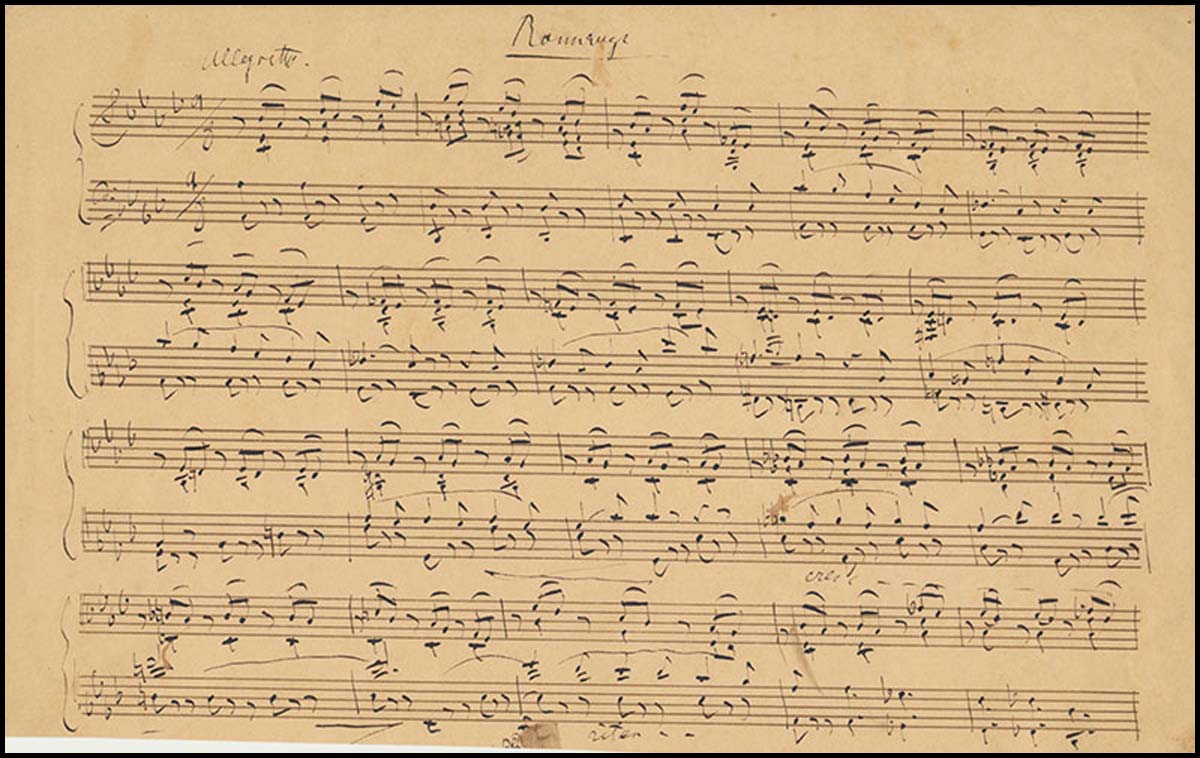 Romanze
Allegretto.
9
8
9
8
cresc
riten - -